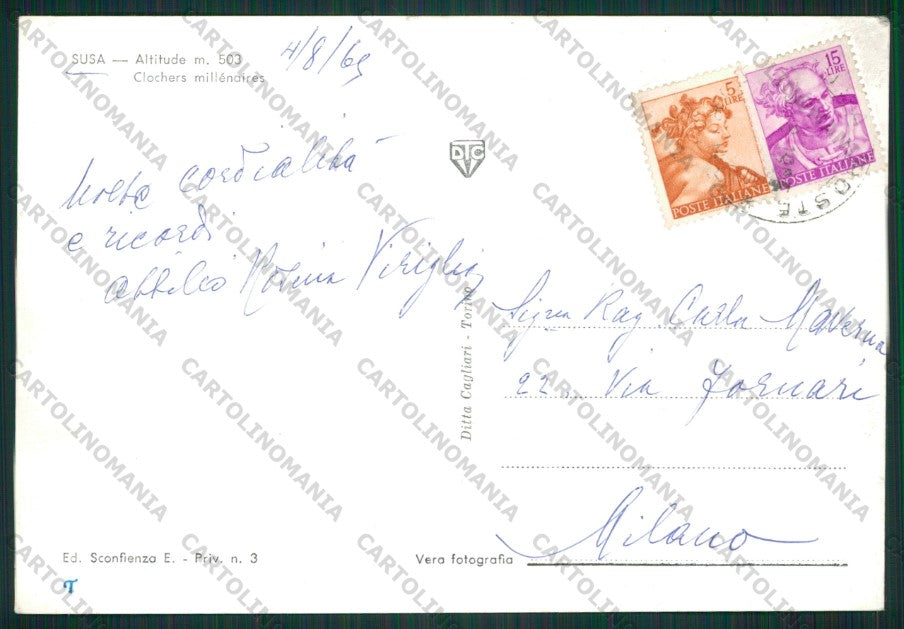 SUSA — Altitude m. 503
Clochers millénaires
4/8/65
Molta cordialità
e ricordi
Attilio Norina Viriglio
DTC
5 LIRE
POSTE ITALIANE
15 LIRE
POSTE ITALIANE
POSTE
Ditta Cagliari - Torino
Sig.ra Rag Carla Maverna
22, Via Fornari
Milano
Ed. Sconfienza E. - Priv. n. 3
Vera fotografia
T
CARTOLINOMANIA